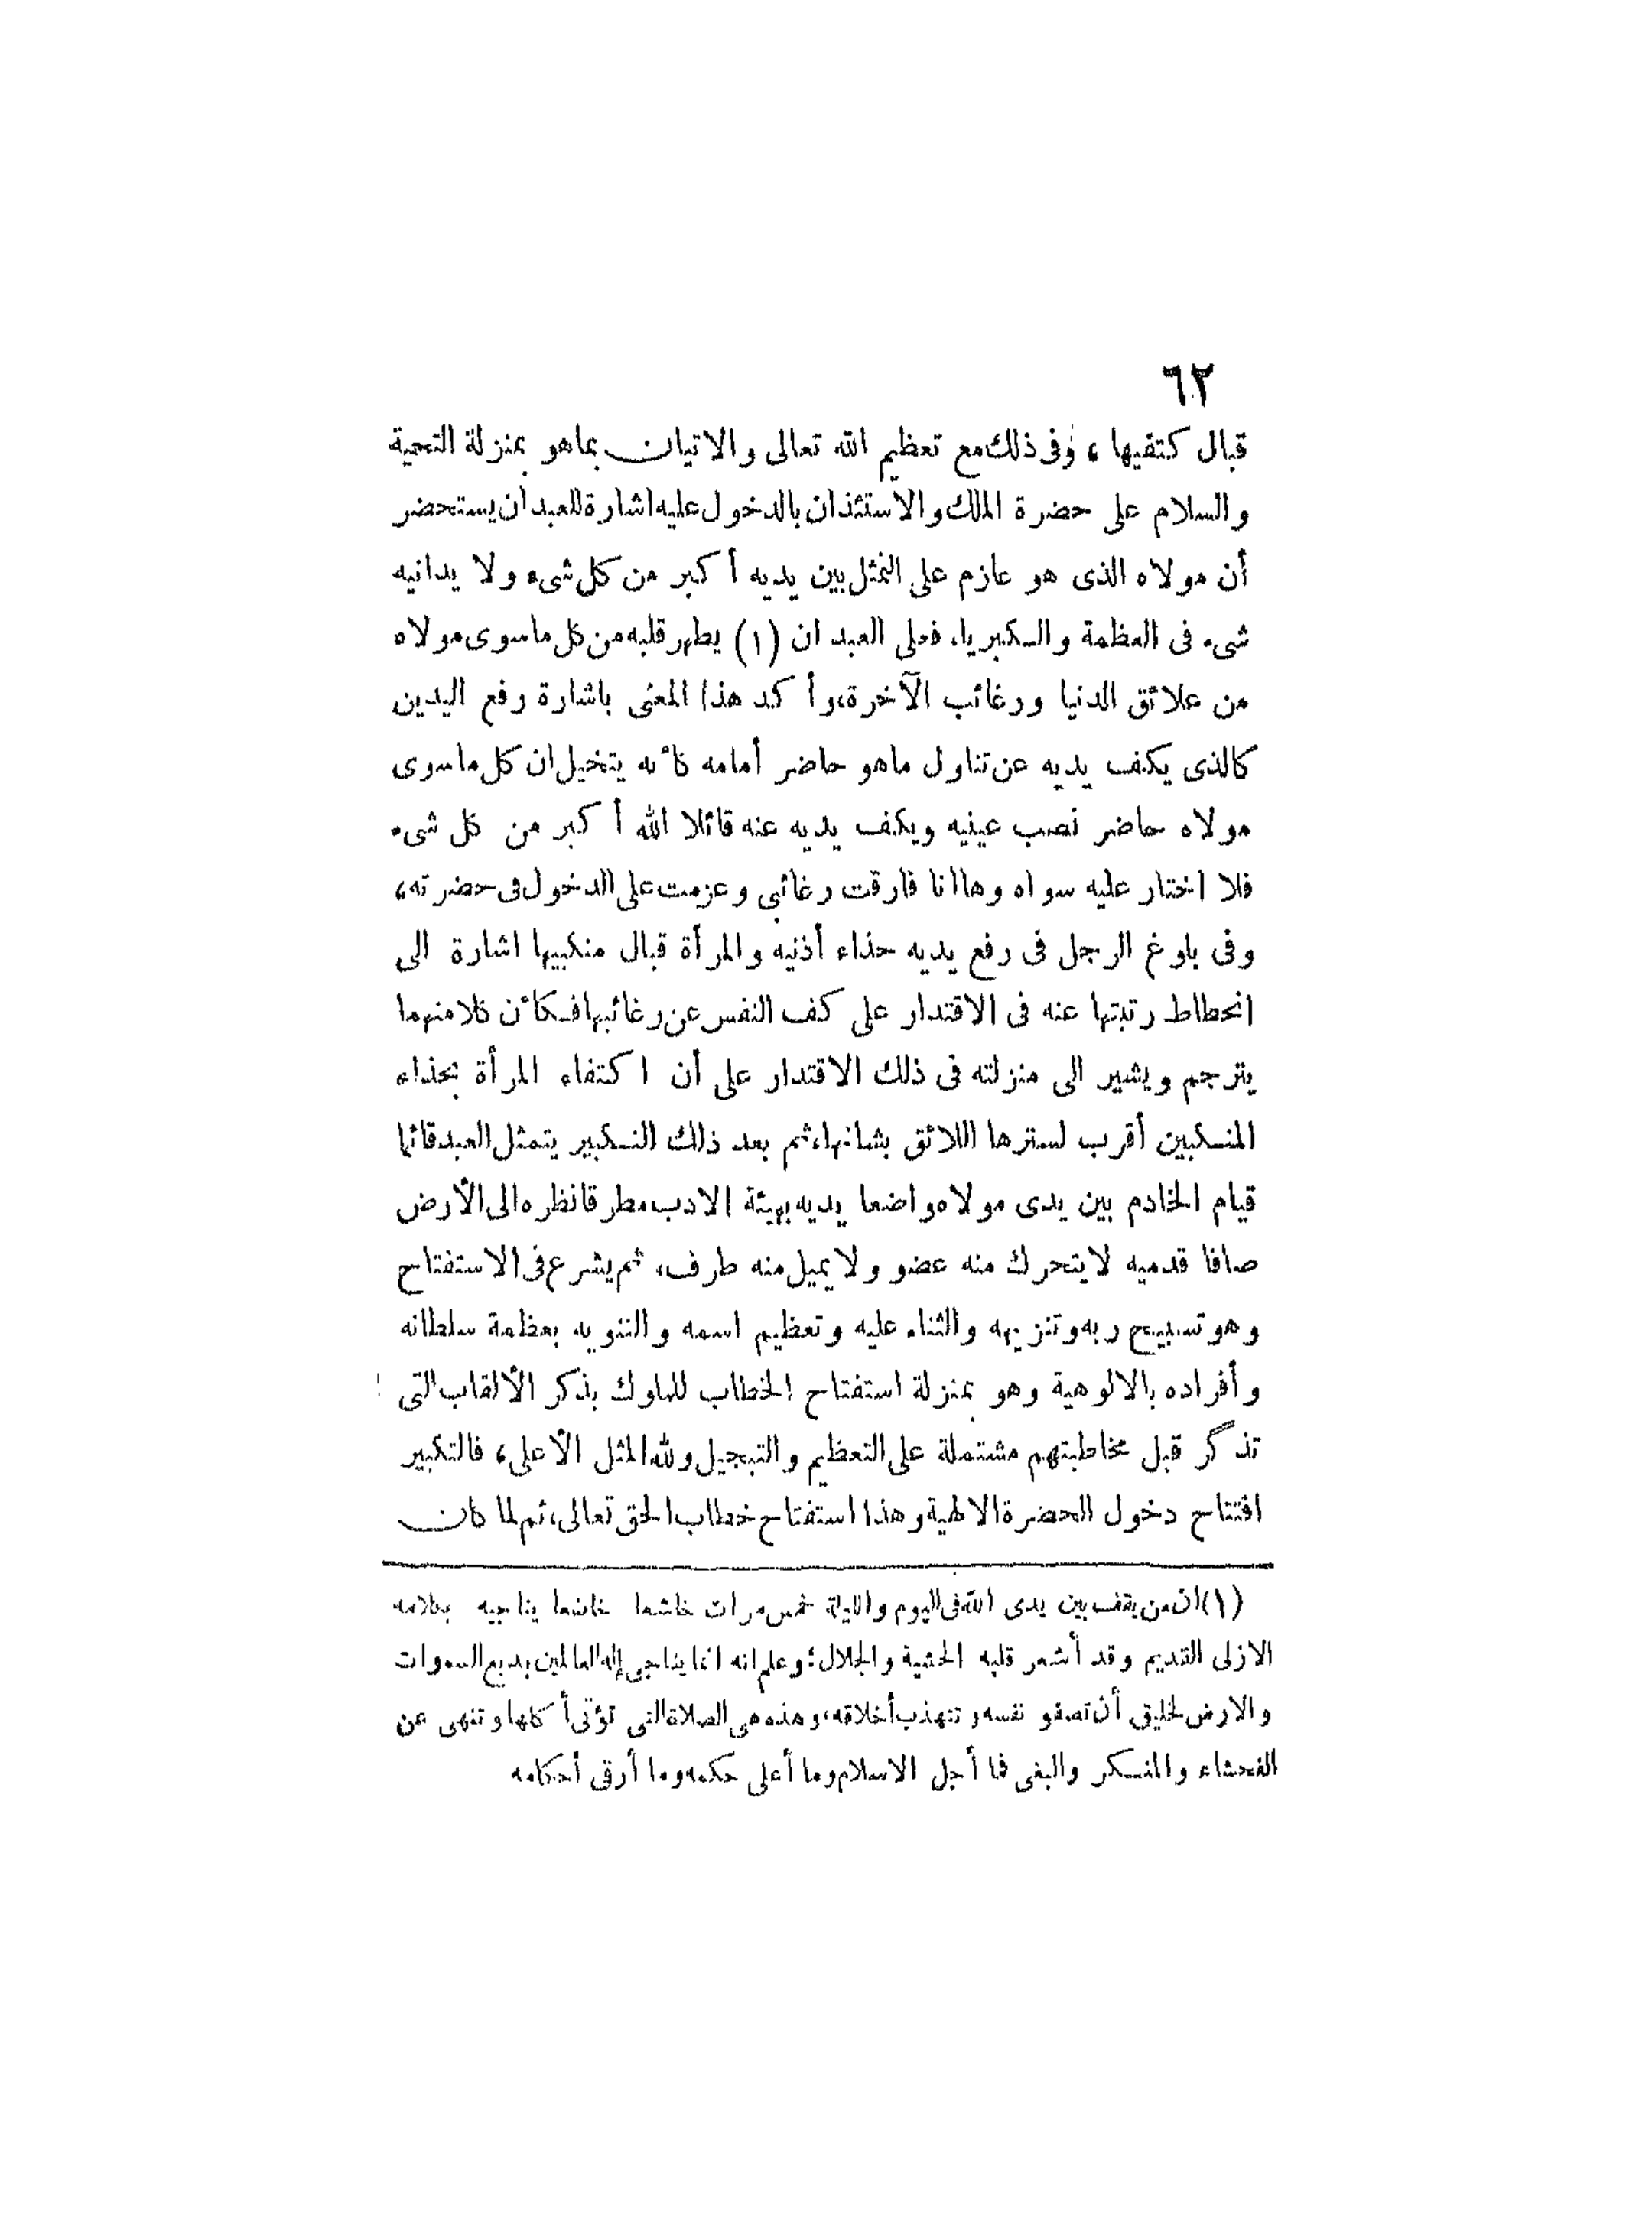 ٦٢
قبال كتفيها ، وفى ذلك مع تعظيم الله تعالى والاتيان بماهو بمنزلة التحية
والسلام على حضرة الملك والاستئذان بالدخول عليه اشارة للعبد أن يستحضر
أن مولاه الذى هو عازم على التمثل بين يديه أكبر من كل شىء ولا يدانيه
شىء فى العظمة والكبرياء فعلى العبد ان (١) يطهر قلبه من كل ماسوى مولاه
من علائق الدنيا ورغائب الآخرة، وأكد هذا المعنى باشارة رفع اليدين
كالذى يكف يديه عن تناول ماهو حاضر أمامه كأنه يتخيل ان كل ماسوى
مولاه حاضر نصب عينيه ويكف يديه عنه قائلا الله أكبر من كل شىء
فلا اختار عليه سواه وهاانا فارقت رغائبى وعزمت على الدخول فى حضرته،
وفى بلوغ الرجل فى رفع يديه حذاء أذنيه والمرأة قبال منكبيها اشارة الى
انحطاط رتبتها عنه فى الاقتدار على كف النفس عن رغائبها فكأن كلا منهما
يترجم ويشير الى منزلته فى ذلك الاقتدار على أن اكتفاء المرأة بحذاء
المنكبين أقرب لسترها اللائق بشانها، ثم بعد ذلك التكبير يتمثل العبد قائما
قيام الخادم بين يدى مولاه واضعا يديه بهيئة الادب مطرقا نظره الى الأرض
صافا قدميه لايتحرك منه عضو ولا يميل منه طرف، ثم يشرع فى الاستفتاح
وهو تسبيح ربه وتنزيهه والثناء عليه وتعظيم اسمه والتنويه بعظمة سلطانه
وأفراده بالالوهية وهو بمنزلة استفتاح الخطاب للملوك بذكر الألقاب التى
تذكر قبل مخاطبتهم مشتملة على التعظيم والتبجيل ولله المثل الأعلى، فالتكبير
افتتاح دخول الحضرة الالهية وهذا استفتاح خطاب الحق تعالى، ثم لما كان
(١) ان من يقف بين يدى الله فى اليوم والليلة خمس مرات خاشعا خاضعا يناجيه بكلامه
الازلى القديم وقد أشعر قلبه الخشية والجلال؛ وعلم انه انما يناجى إله العالمين بديع السموات
والارض لخليق أن تصفو نفسه وتتهذب أخلاقه، وهذه هى الصلاة التى تؤتى أكلها وتنهى عن
الفحشاء والمنكر والبغى فما أجل الاسلام وما أعلى حكمه وما أرقى أحكامه